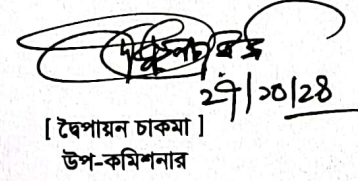 ২৭/১০/২৪
[ দ্বৈপায়ন চাকমা ]
উপ-কমিশনার